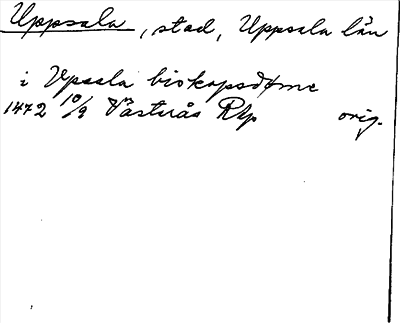 Uppsala, stad, Uppsala län
i Vpsala biskopsdøme
1472 10/9 Västerås Rtp orig.